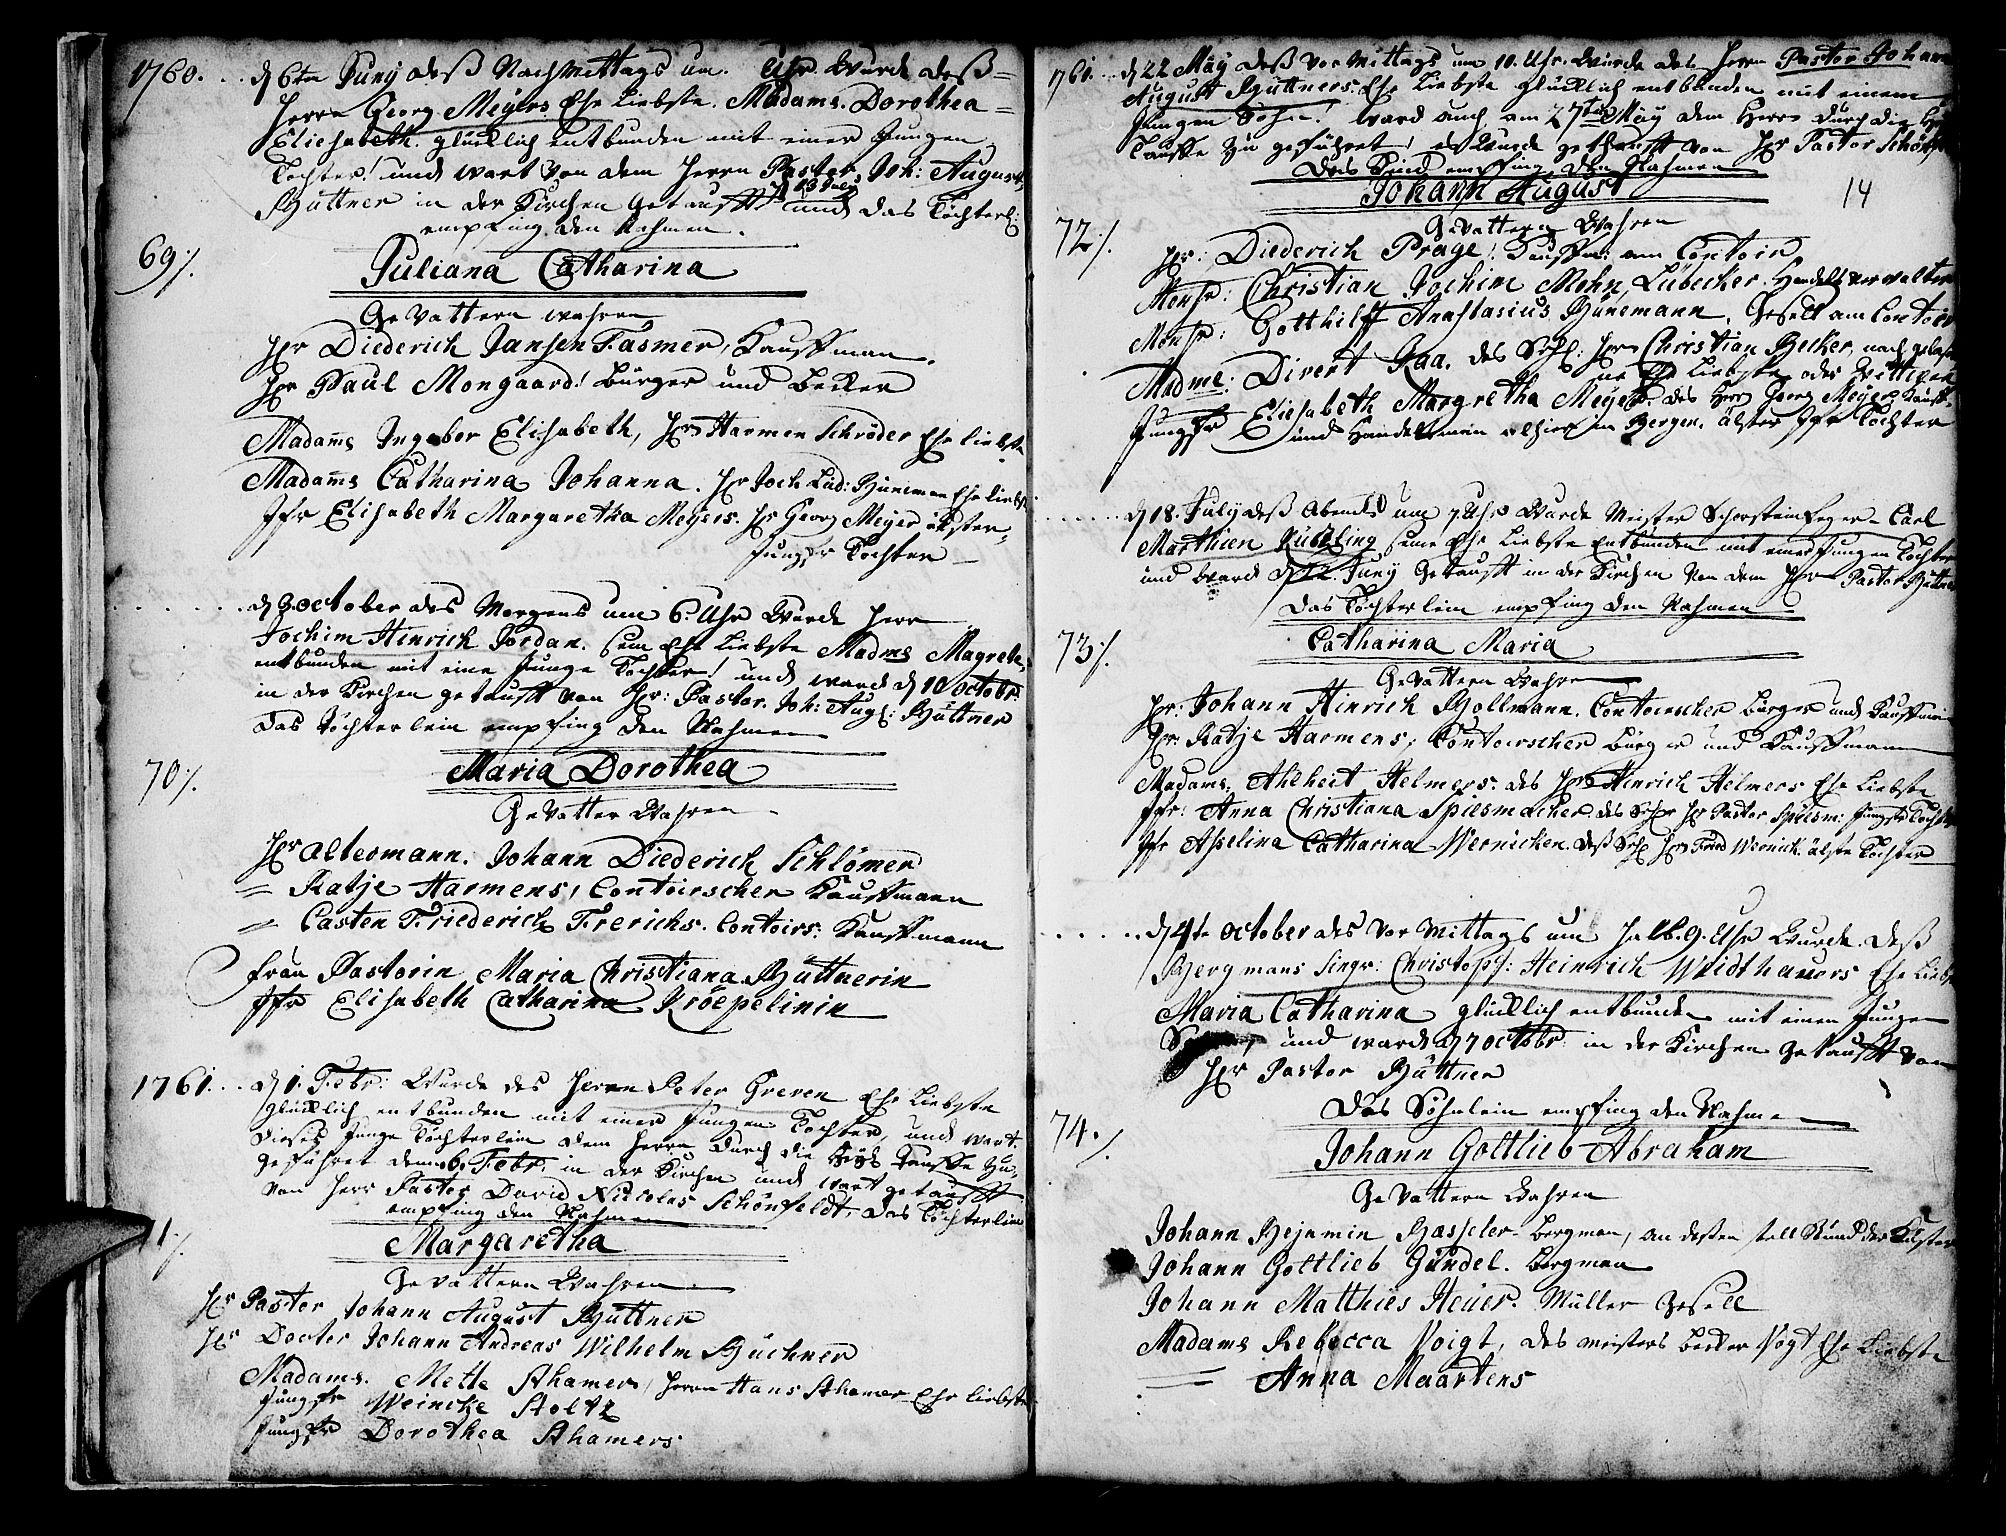 1760. d 6ten Juny deß Nachmittags um. Uhr wurde deß
Herrn Georg Meyers Ehe Liebste. Madams. Dorothea
Eliesabeth. glücklich entbunden mit einer Jungen
Tochter! und wart von dem Herrn Pastor Joh: August
Büttner in der Kirchen getaufft und das Töchterl:
empfing den Nahmen.
69 ./.
Juliana Catharina
Gevattern wahren
Hr Diederich Jansen Fasmer, Kauffman.
Hr Paul Mongaard! Bürger und Becker
Madams Ingeber Elisabeth, Hr Harmen Schröder Ehe liebste
Madams Catharina Johanna. Hr Joch Lud: Büneman Ehe liebst
Jfr Elisabeth Margaretha Meyers. Hr Georg Meyer älster
Jungfr Tochter
d 3 october des Morgens um 6. Uhr wurde Herr
Jochim Henrich Jordan. sein Ehe Liebste Madms Magreta
entbunden mit eine Junge Tochter! und ward d 10 octobr:
in der Kirchen getaufft von Hr: Pastor. Joh: Aug: Büttner
Das Töchterlein empfing den Nahmen
70 ./.
Maria Dorothea
Gevatter Wahren
Hr altermann. Johann Diederich Schlömer
= Ratje Harmens, Contoirscher Kauffmann
= Casten Friederich Frerichs. Contoirs: Kauffmann
frau Pastorin Maria Christiana Büttnerin
Jfr Elisabeth Catharina Kröepelinin
1761. d 1. Febr: Wurde des Herrn Peter Greven Ehe Liebste
glücklich entbunden mit einer Jungen Tochter, und wart
dieses Junge Töchterlein dem Herrn durch die Tauffe zu
geführet den 6. Febr. in der Kirchen und wart getaufft
von Herr Pastor David Nicolas Schönfeldt, das Töchterlein
empfing den Nahmen
71 ./.
Margaretha
Gevattern Wahren
Hr Pastor Johann August Büttner
Hr Doctor Johann Andreas Wilhelm Büchner
Madams. Mette Ahamer, Herrn Hans Ahamer Ehe liebste
Jungfr Weincke Holtz
Jungfr Dorothea Ahamers
1761. d 22 May deß vor Mittags um 10. Uhr. wurde des Herrn Pastor Johann
August Büttners. Ehe Liebste glücklich entbunden mit einem
Jungen Sohn! ward auch am 27ten May dem Herrn durch die
Tauffe zu geführet! es wurde getaufft von Hr Pastor
Das Kind empfing den Nahmen
Johann August
14
72 ./.
Gevattern Wahren
Hr: Diederich Prage! Kauffm: am Contoir
Monsr: Christian Jochim Mohn, Lübecker. Handelsverwalter
Monsr: Gotthilff Anastasius Bünemann, Gesell am Contoir
Madme: Divert Raa. des Sehl: Hr Christian Becker, nach gelaßene
Ehe Liebste oder Wittiwe
Jungfr Eliesabeth Margretha Meyer. des Herrn Georg Meyer,
und Handelsman alhier in Bergen. älster Jfr Tochter
d 18. July deß Abends um 7 Uhr Wurde Meister Schorsteinfeger Carl
Marthien Kübling seine Ehe Liebste Entbunden mit einer Jungen Tochter
und ward d 22. Juny getaufft in der Kirchen von dem Hr Pastor Büttner
Das Töchterlein empfing den Nahmen
73 ./.
Catharina Maria
Gevattern Wahren
Hr: Johann Hinrich Bollmann. Contoirscher Bürger und Kauffman
Hr: Ratje Harmens, Contoirscher Bürger und Kauffmann
Madams: Ahlheit Helmers. des Hrn Hinrich Helmers Ehe Liebste
Jfr: Anna Christiana Spiesmacher. des Sehl Hr Pastor Spiesm: Jungste Tochter
Jfr Asselina Catharina Wernicken. deß Sehl Hr Fried Wernick. älste Tochter
d 4te october des vor Mittags um halb. 9. Uhr wurde deß
Bergmans Singr: Christoph: Heinrich Weidthauers Ehe Liebste
Maria Catharina glücklich entbunden mit einen Jungen
und ward d 7 octobr: in der Kirchen getaufft von
Hr Pastor Büttner
Das Söhnlein empfing den Nahmen
74 ./.
Johann Gottlieb Abraham
Gevattern Wahren
Johann Bejnmin Hasseler bergman, an desten stell stund der Küster
Johann Gottlieb Gündel. bergman
Johann Matthies Heuer. Müller Gesell
Madams Rebecca Voigt, des meisters becker Vogt Ehe Liebste
= Anna Maartens